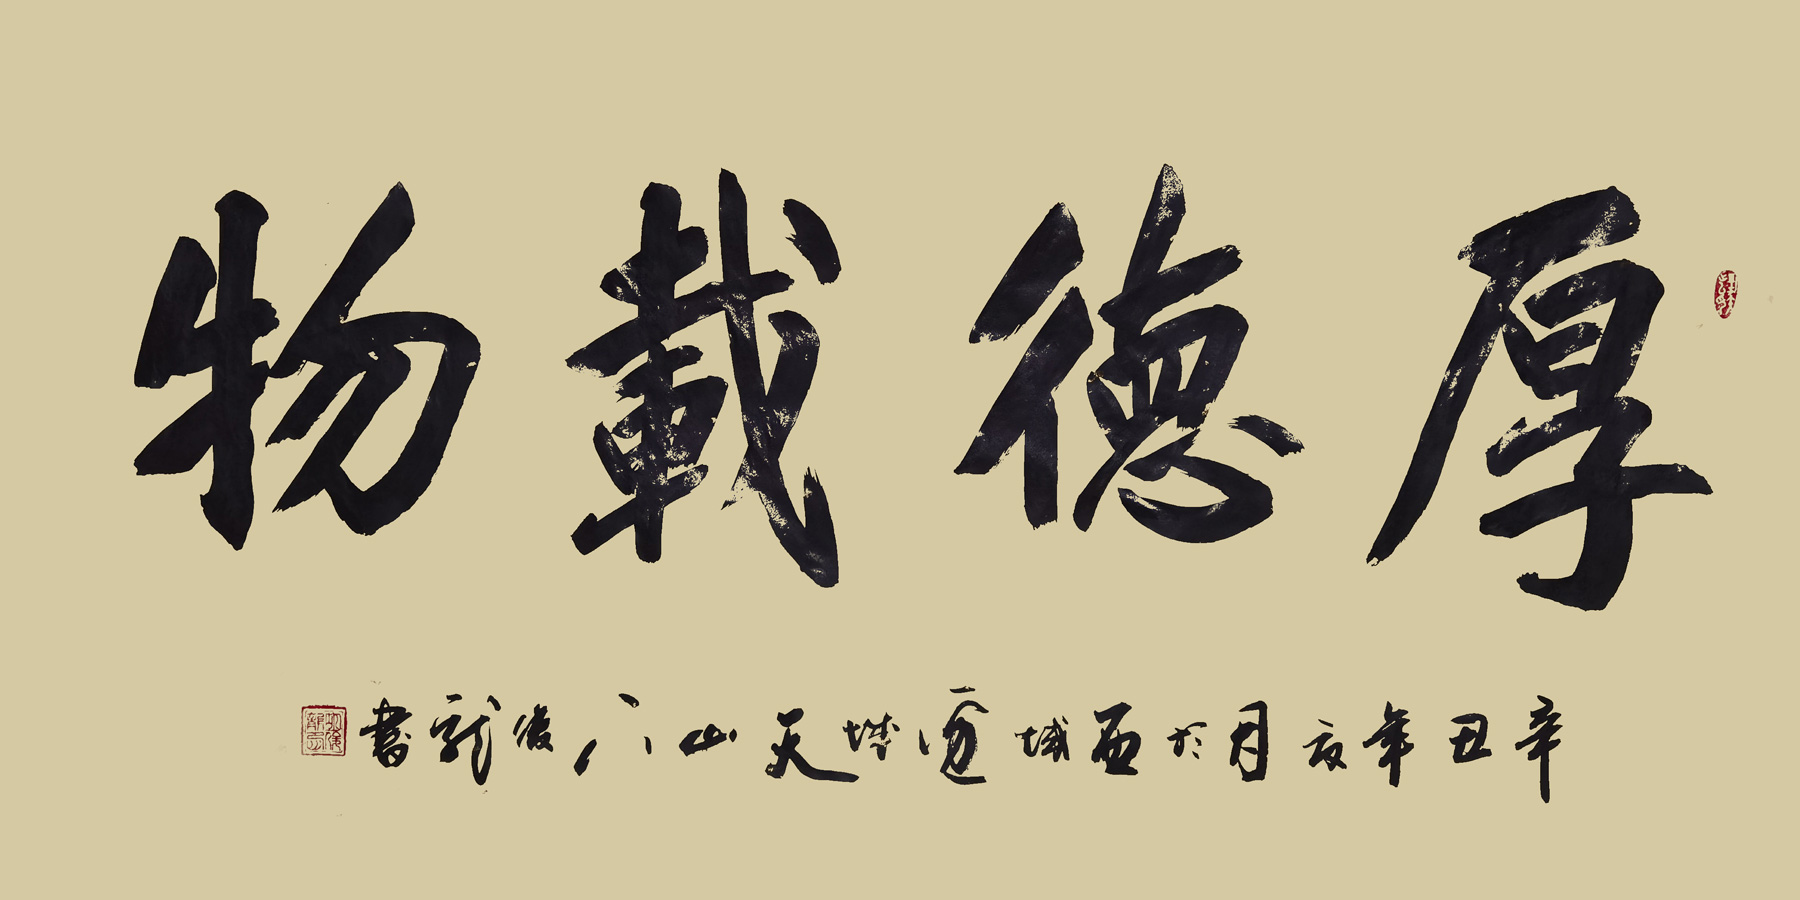 厚德載物
辛丑年夏月於西域邊城天山下俊龍書